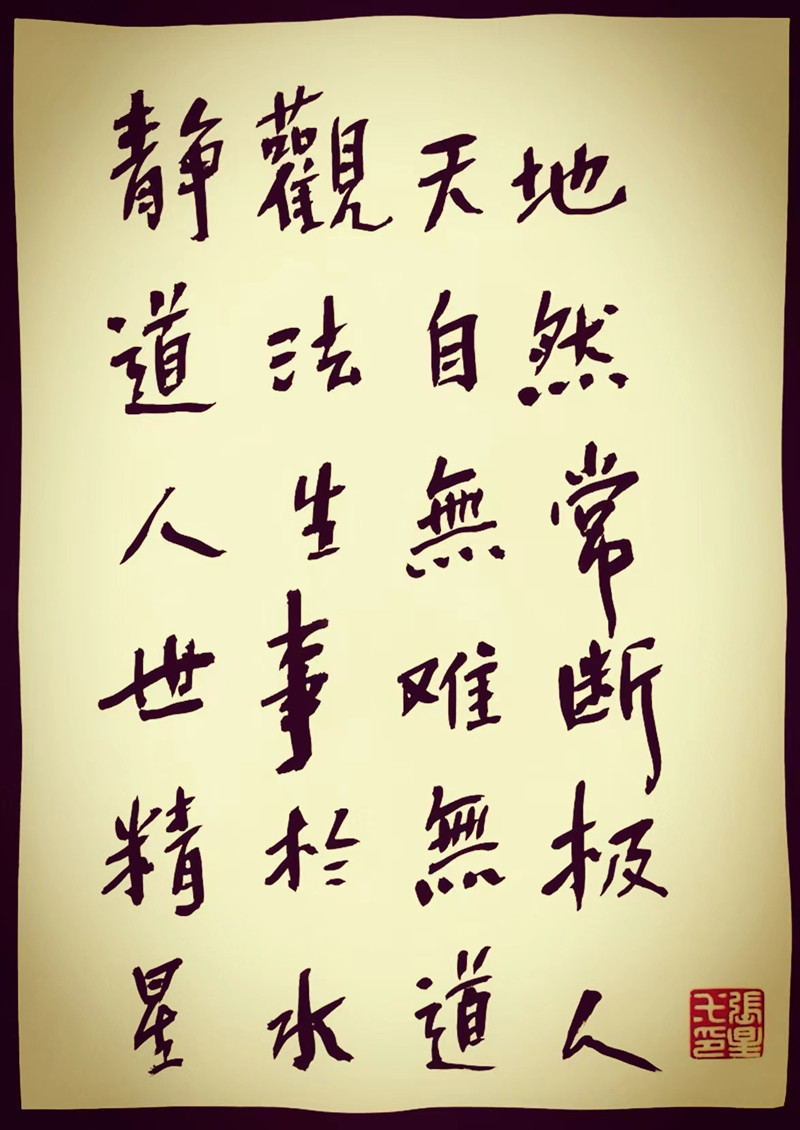 静觀天地
道法自然
人生無常
世事难断
精於無极
星水道人